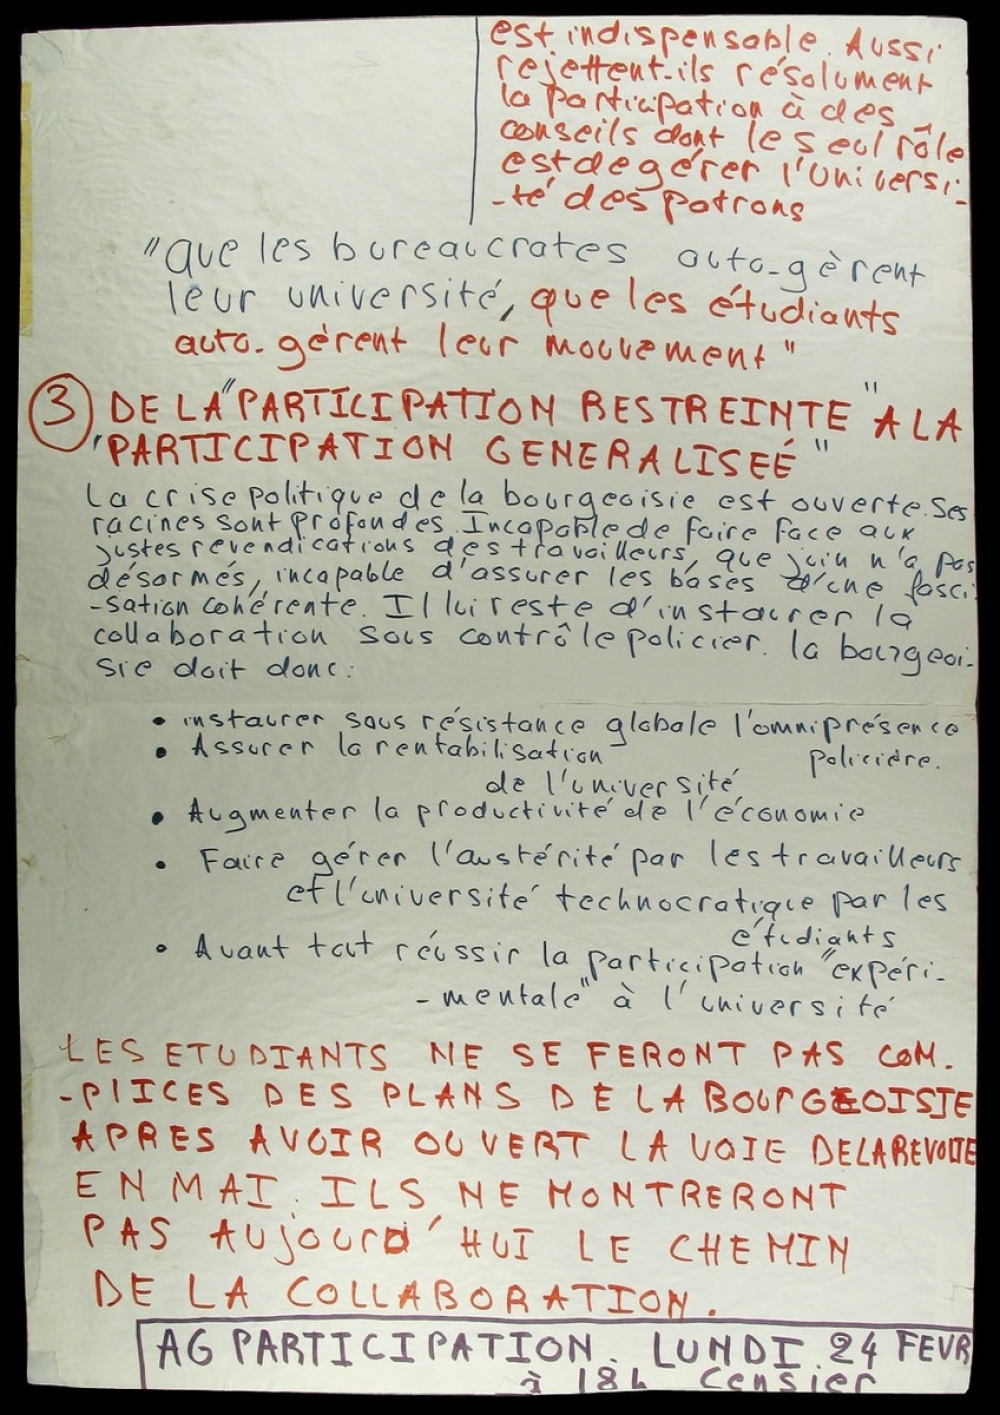 est indispensable. Aussi
rejettent-ils résolument
la participation à des
conseils dont le seul rôle
est de gérer l'Universi-
-té des patrons
"que les bureaucrates auto-gèrent
leur université, que les étudiants
auto-gèrent leur mouvement"
3 DE LA "PARTICIPATION RESTREINTE" A LA
"PARTICIPATION GENERALISEÉ"
La crise politique de la bourgeoisie est ouverte. Ses
racines sont profondes. Incapable de faire face aux
justes revendications des travailleurs, que juin n'a pas
désarmés, incapable d'assurer les bases d'une fasci-
-sation cohérente. Il lui reste d'instaurer la
collaboration sous contrôle policier. la bourgeoi-
sie doit donc:
• instaurer sous résistance globale l'omniprésence
policière.
• Assurer la rentabilisation
de l'université
• Augmenter la productivité de l'économie
• Faire gérer l'austérité par les travailleurs
et l'université technocratique par les
étudiants
• Avant tout réussir la participation "expéri-
-mentale" à l'université
LES ETUDIANTS NE SE FERONT PAS COM.
-PLICES DES PLANS DE LA BOURGEOISIE
APRES AVOIR OUVERT LA VOIE DE LA REVOLTE
EN MAI. ILS NE MONTRERONT
PAS AUJOURD'HUI LE CHEMIN
DE LA COLLABORATION.
AG PARTICIPATION. LUNDI 24 FEVR
à 18h Censier